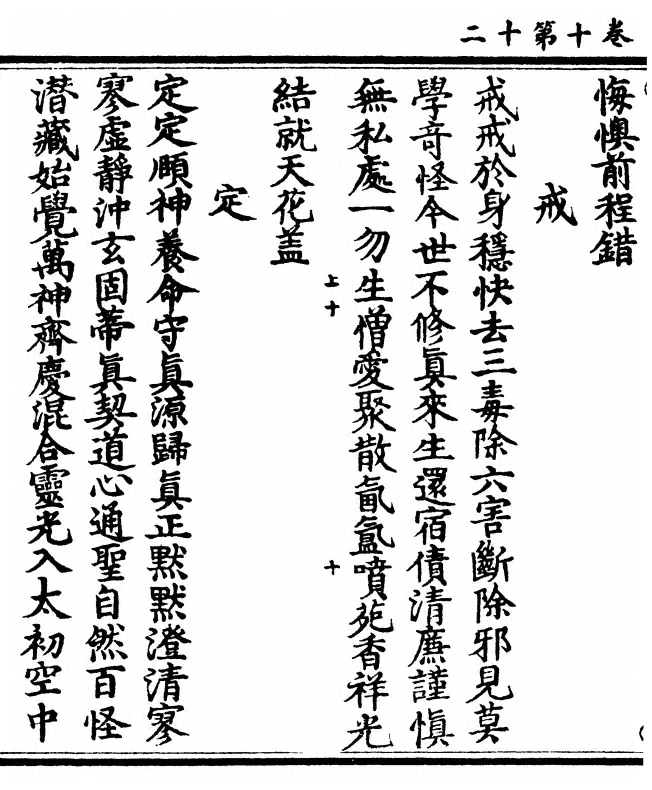 卷十第十二
悔懊前程錯
戒
戒戒於身穩快去三毒除六害斷除邪見莫
學竒怪今世不修眞來生還宿債清廉謹慎
無私處一勿生憎愛聚散氤氳噴苑香祥光
結就天花盖
定
定定頤神養命守眞源歸眞正默默澄清寥
寥虛靜沖玄固蒂眞契道心通聖自然百怪
潜藏始覺萬神齊慶混合靈光入太初空中
上十
十